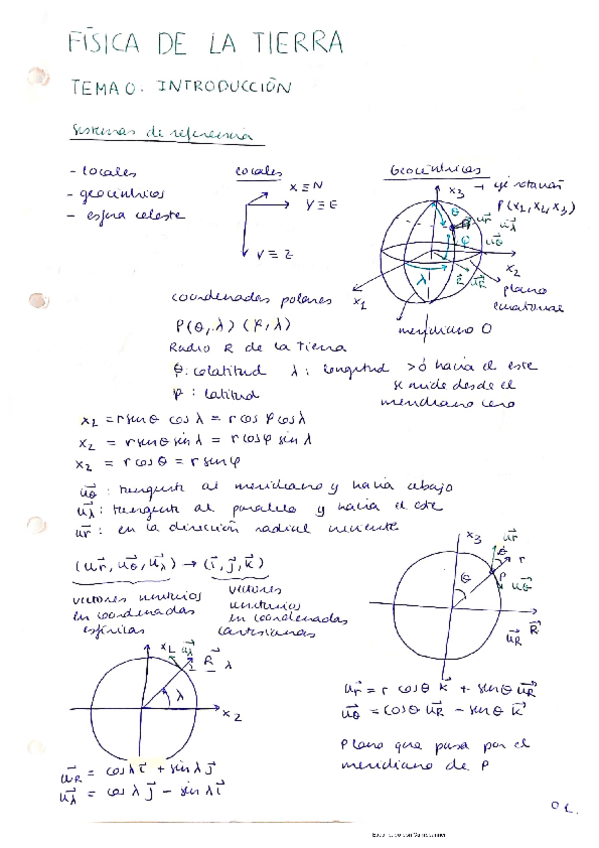 FÍSICA DE LA TIERRA
TEMA 0. INTRODUCCIÓN
Sistemas de referencia
- locales
- geocéntricos
- esfera celeste
locales
X ≡ N
Y ≡ E
V ≡ Z
Geocéntricas
x3 → eje rotación
P(x1, x2, x3)
θ
ur
uλ
φ
uθ
x2
λ
R uR
plano
ecuatorial
x1
meridiano 0
coordenadas polares
P(θ, λ) (φ, λ)
Radio R de la Tierra
θ: colatitud λ: longitud >0 hacia el este
φ: latitud se mide desde el
meridiano cero
x1 = r senθ cosλ = r cosφ cosλ
x2 = r senθ senλ = r cosφ sinλ
x2 = r cosθ = r senφ
uθ: tangente al meridiano y hacia abajo
uλ: tangente al paralelo y hacia el este
ur: en la dirección radial creciente
(ur, uθ, uλ) → (i, j, k)
vectores unitarios
en coordenadas
esféricas
vectores
unitarios
en coordenadas
cartesianas
x3
ur
θ
r
θ
P
uθ
R
uR
uλ
R
λ
λ
x2
ur = r cosθ k + senθ uR
uθ = cosθ uR - senθ k
Plano que pasa por el
meridiano de P
uR = cosλ i + sinλ j
uλ = cosλ j - sinλ i